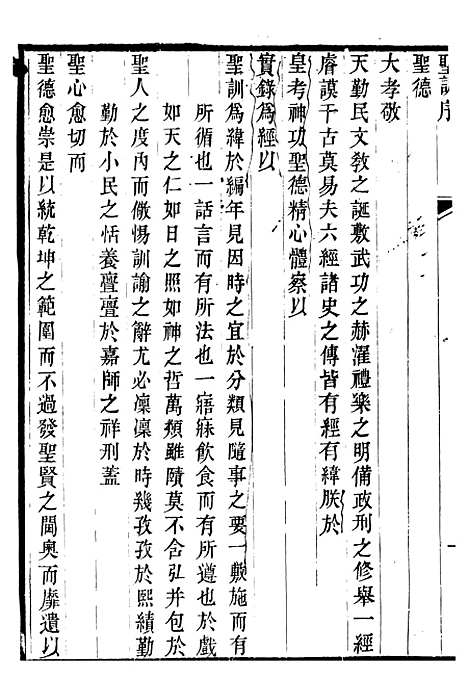 聖訓序
聖德
大孝敬
天勤民文敎之誕敷武功之赫濯禮樂之明備政刑之修舉一經
睿謨千古莫易夫六經諸史之傳皆有經有緯朕於
皇考神功聖德精心體察以
實錄為經以
聖訓為緯於編年見因時之宜於分類見隨事之要一敷施而有
所循也一話言而有所法也一寤寐飲食而有所遵也於戲
如天之仁如日之照如神之哲萬類雖賾莫不含弘并包於
聖人之度內而儆惕訓諭之辭尤必凜凜於時幾孜孜於熙績勤
勤於小民之恬養亹亹於嘉師之祥刑蓋
聖心愈切而
聖德愈崇是以統乾坤之範圍而不過發聖賢之閫奧而靡遺以